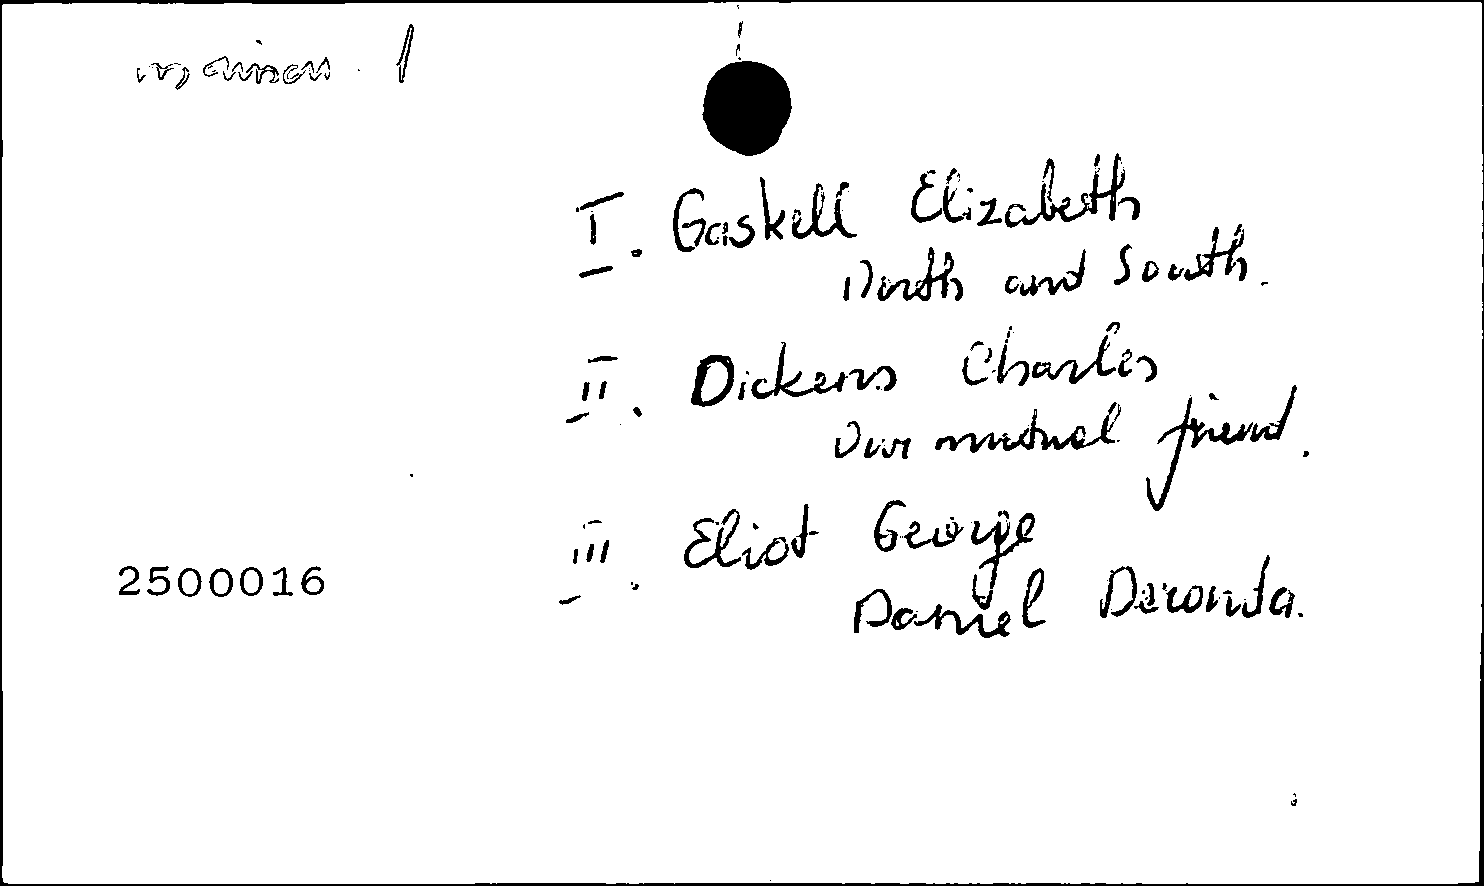 I. Gaskell Elizabeth
North and South.
II. Dickens Charles
Our mutual friend.
III. Eliot George
2500016
Daniel Deronda.